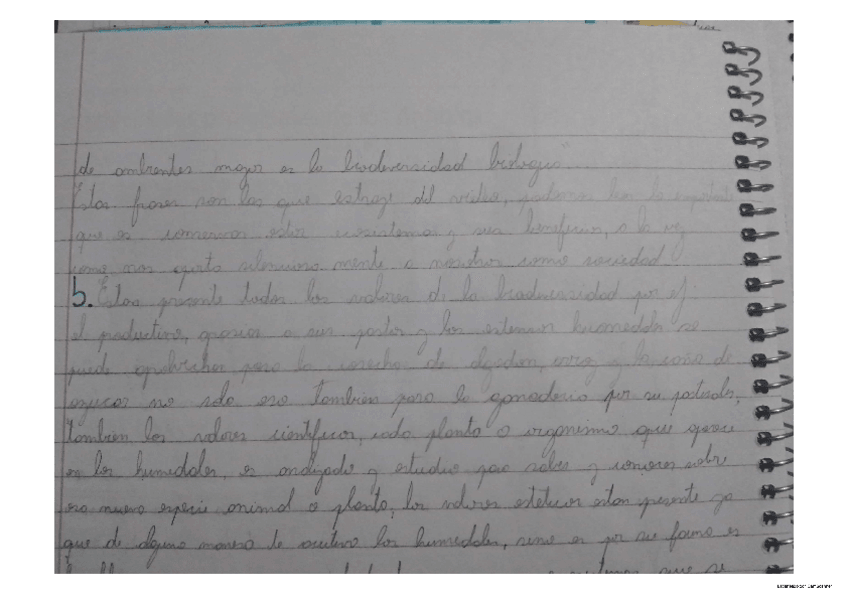 de ambientes mayor es la biodiversidad biologica"
Estas frases son las que extraje del video, podemos leer lo importante
que es conservar estos ecosistemas y sus beneficios, a la vez
como nos aporta silenciosa mente a nosotros como sociedad.
5. Estan presente todos los valores de la biodiversidad por ej:
el productivo, gracias a sus pastos y los extensos humedales se
puede aprovechar para la cosecha de algodon, arroz y la caña de
azucar no solo eso tambien para la ganaderia por su pastizales,
tambien los valores cientificos, cada planta o organismo que aparece
en los humedales, es analizado y estudio para saber y conocer sobre
esa nueva especie animal o planta, los valores esteticos estan presente ya
que de alguna manera te cautiva los humedales, sino es por su fauna es
que se